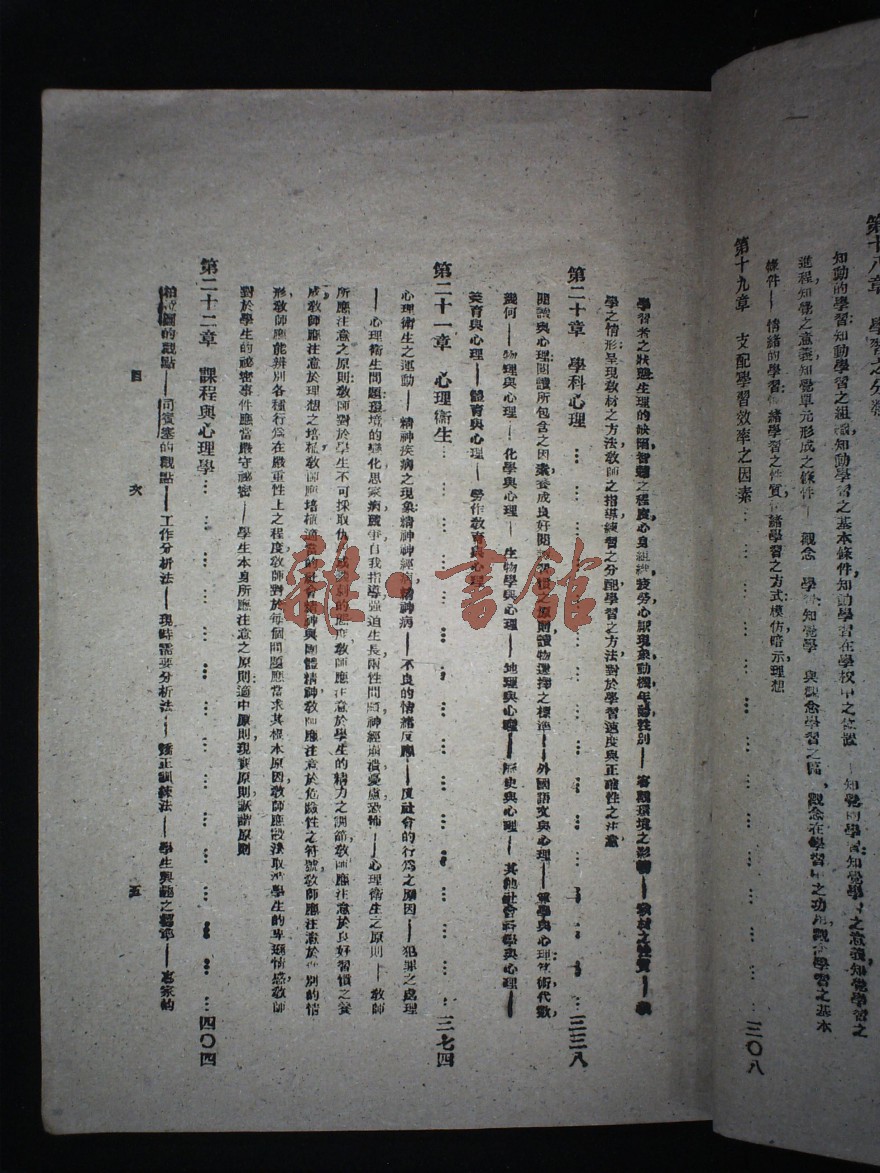 第十八章 學習之分類
知動的學習:知動學習之組織,知動學習之基本條件知動學習在學校中之位置——知覺的學習:知覺學習之意義,知覺學習之
進程,知覺之意義,知覺單元形成之條件——觀念學習:知覺學習與觀念學習之關係,觀念在學習中之功用,觀念學習之基本
條件——情緒的學習:情緒學習之性質,情緒學習之方式:模仿暗示理想
第十九章 支配學習效率之因素……三〇八
學習者之狀態:生理的缺陷,智慧之程度,心身組織,疲勞,心厭現象,動機,年齡,性別——客觀環境之影響——教材之性質——教
學之情形:呈現教材之方法,教師之指導,練習之分配,學習之方法,對於學習速度與正確性之注意
第二十章 學科心理……三三八
閱讀與心理:閱讀所包含之因素,養成良好閱讀習慣之原則,讀物選擇之標準——外國語文與心理——算學與心理:算術代數,
幾何——物理與心理——化學與心理——生物學與心理——地理與心理——歷史與心理——其他社會科學與心理——
美育與心理——體育與心理——勞作教育與心理
第二十一章 心理衞生……三七四
心理衞生之運動——精神疾病之現象:精神神經病,精神病——不良的情緒反應——反社會的行爲之原因——犯罪之處理
——心理衞生問題:環境的變化,思家病,戰爭,自我指導,強迫生長,兩性問題,神經崩潰,憂慮恐怖——心理衞生之原則——教師
所應注意之原則:教師對於學生不可採取仇視或譏刺的態度,教師應注意於學生的精力之調節,教師應注意於良好習慣之養
成,教師應注意於理想之培植,教師應培植適當的社會精神與團體精神,教師應注意於危險性之符號,教師應注意於性別的情
形,教師應能辨別各種行爲在嚴重性上之程度,教師對於每個問題應當求其根本原因,教師應設法取消學生的卑遜情感,教師
對於學生的祕密事件應當嚴守祕密——學生本身所應注意之原則:適中原則,現實原則,詼諧原則
第二十二章 課程與心理學……四〇四
柏拉圖的觀點——司賓塞的觀點——工作分析法——現時需要分析法——矯正訓練法——學生興趣之標準——專家的
目 次 五
雜·書館